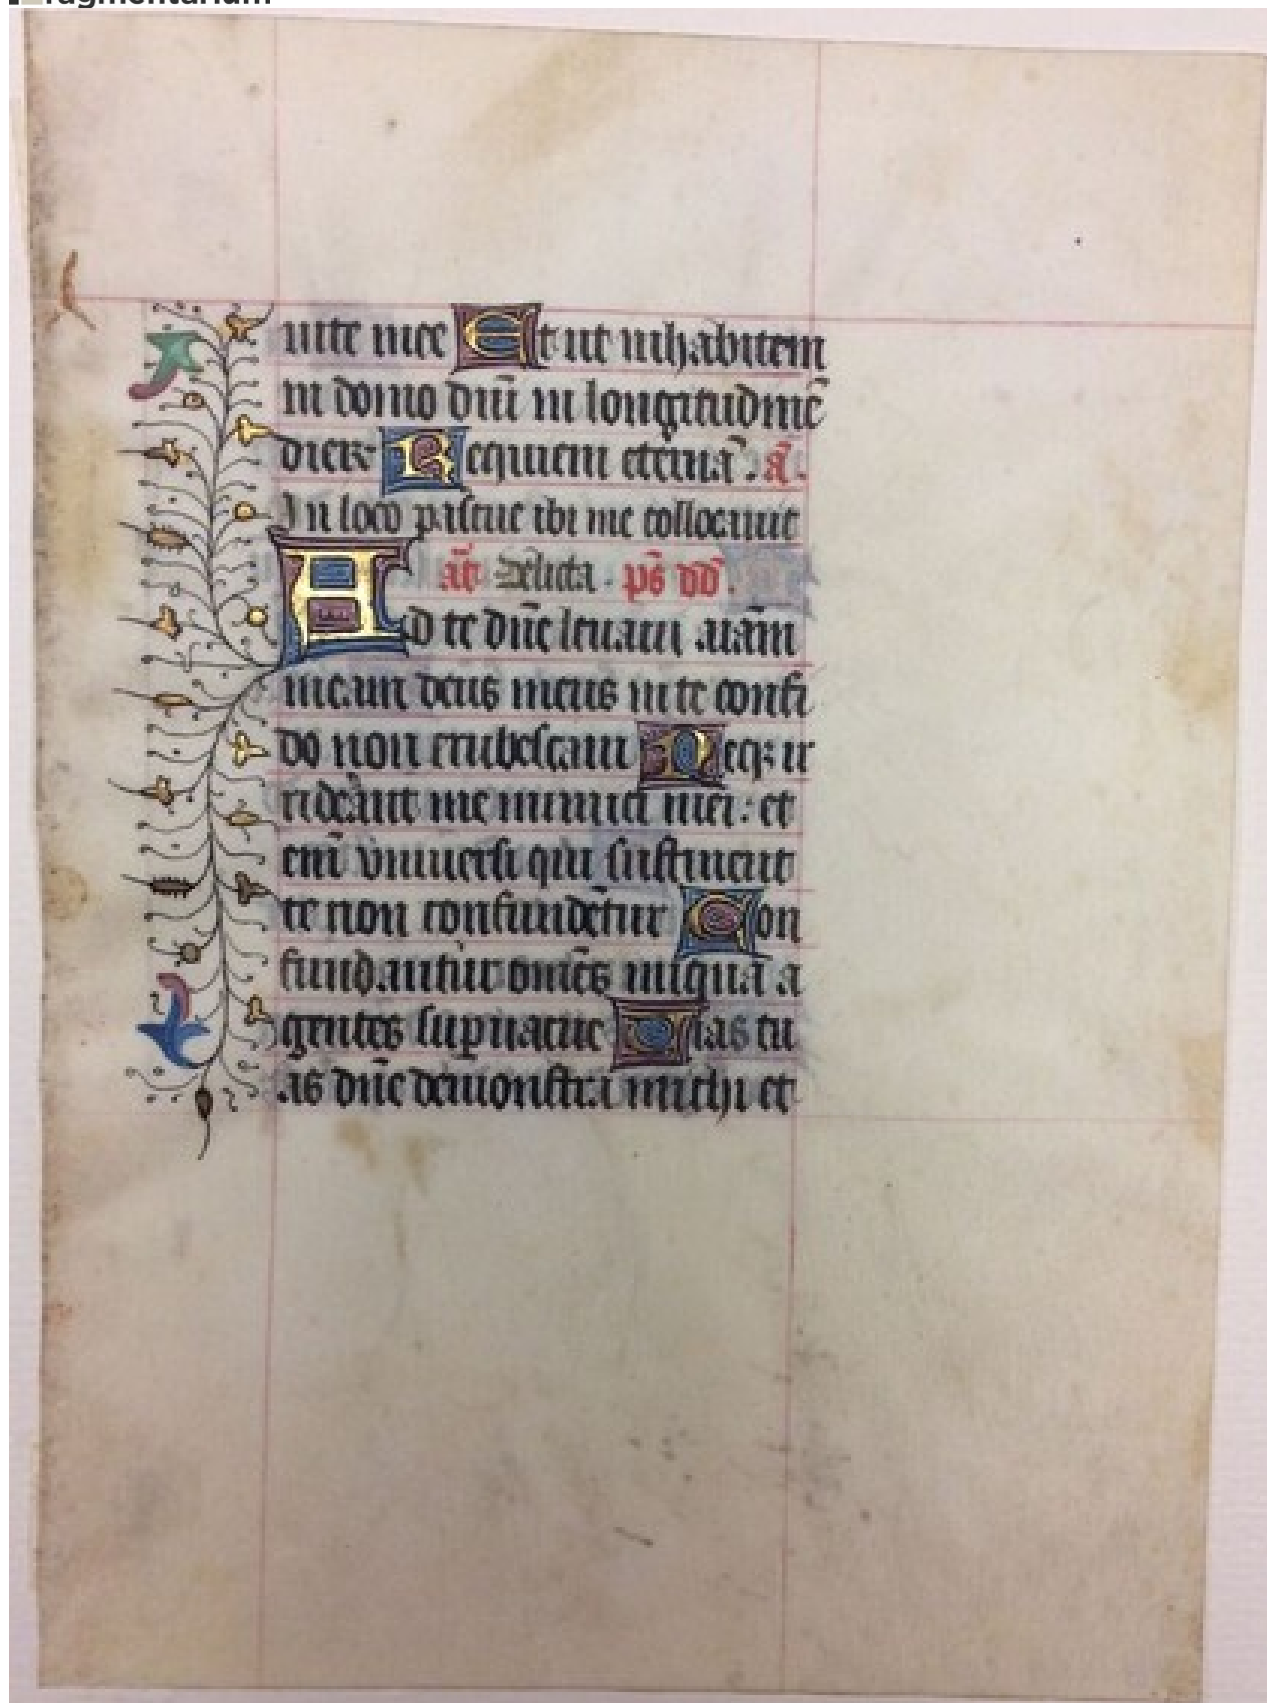 ragmentarium
uite mee Et ut inhabitem
in domo dm̄ in longitudinē
dierꝝ Requiem eternā. ā.
In loco pascue ibi me collocauit
añ Delicta. pš dd̄.
Ad te dñe leuaui aīam
meam deus meus in te confi
do non erubescam Neqꝫ ir
rideant me inimici mei: et
enī vniuersi qui sustinent
te non confundētur Con
fundantur omēs iniqua a
gentes supuacue Uias tu
as dñe demonstra michi et